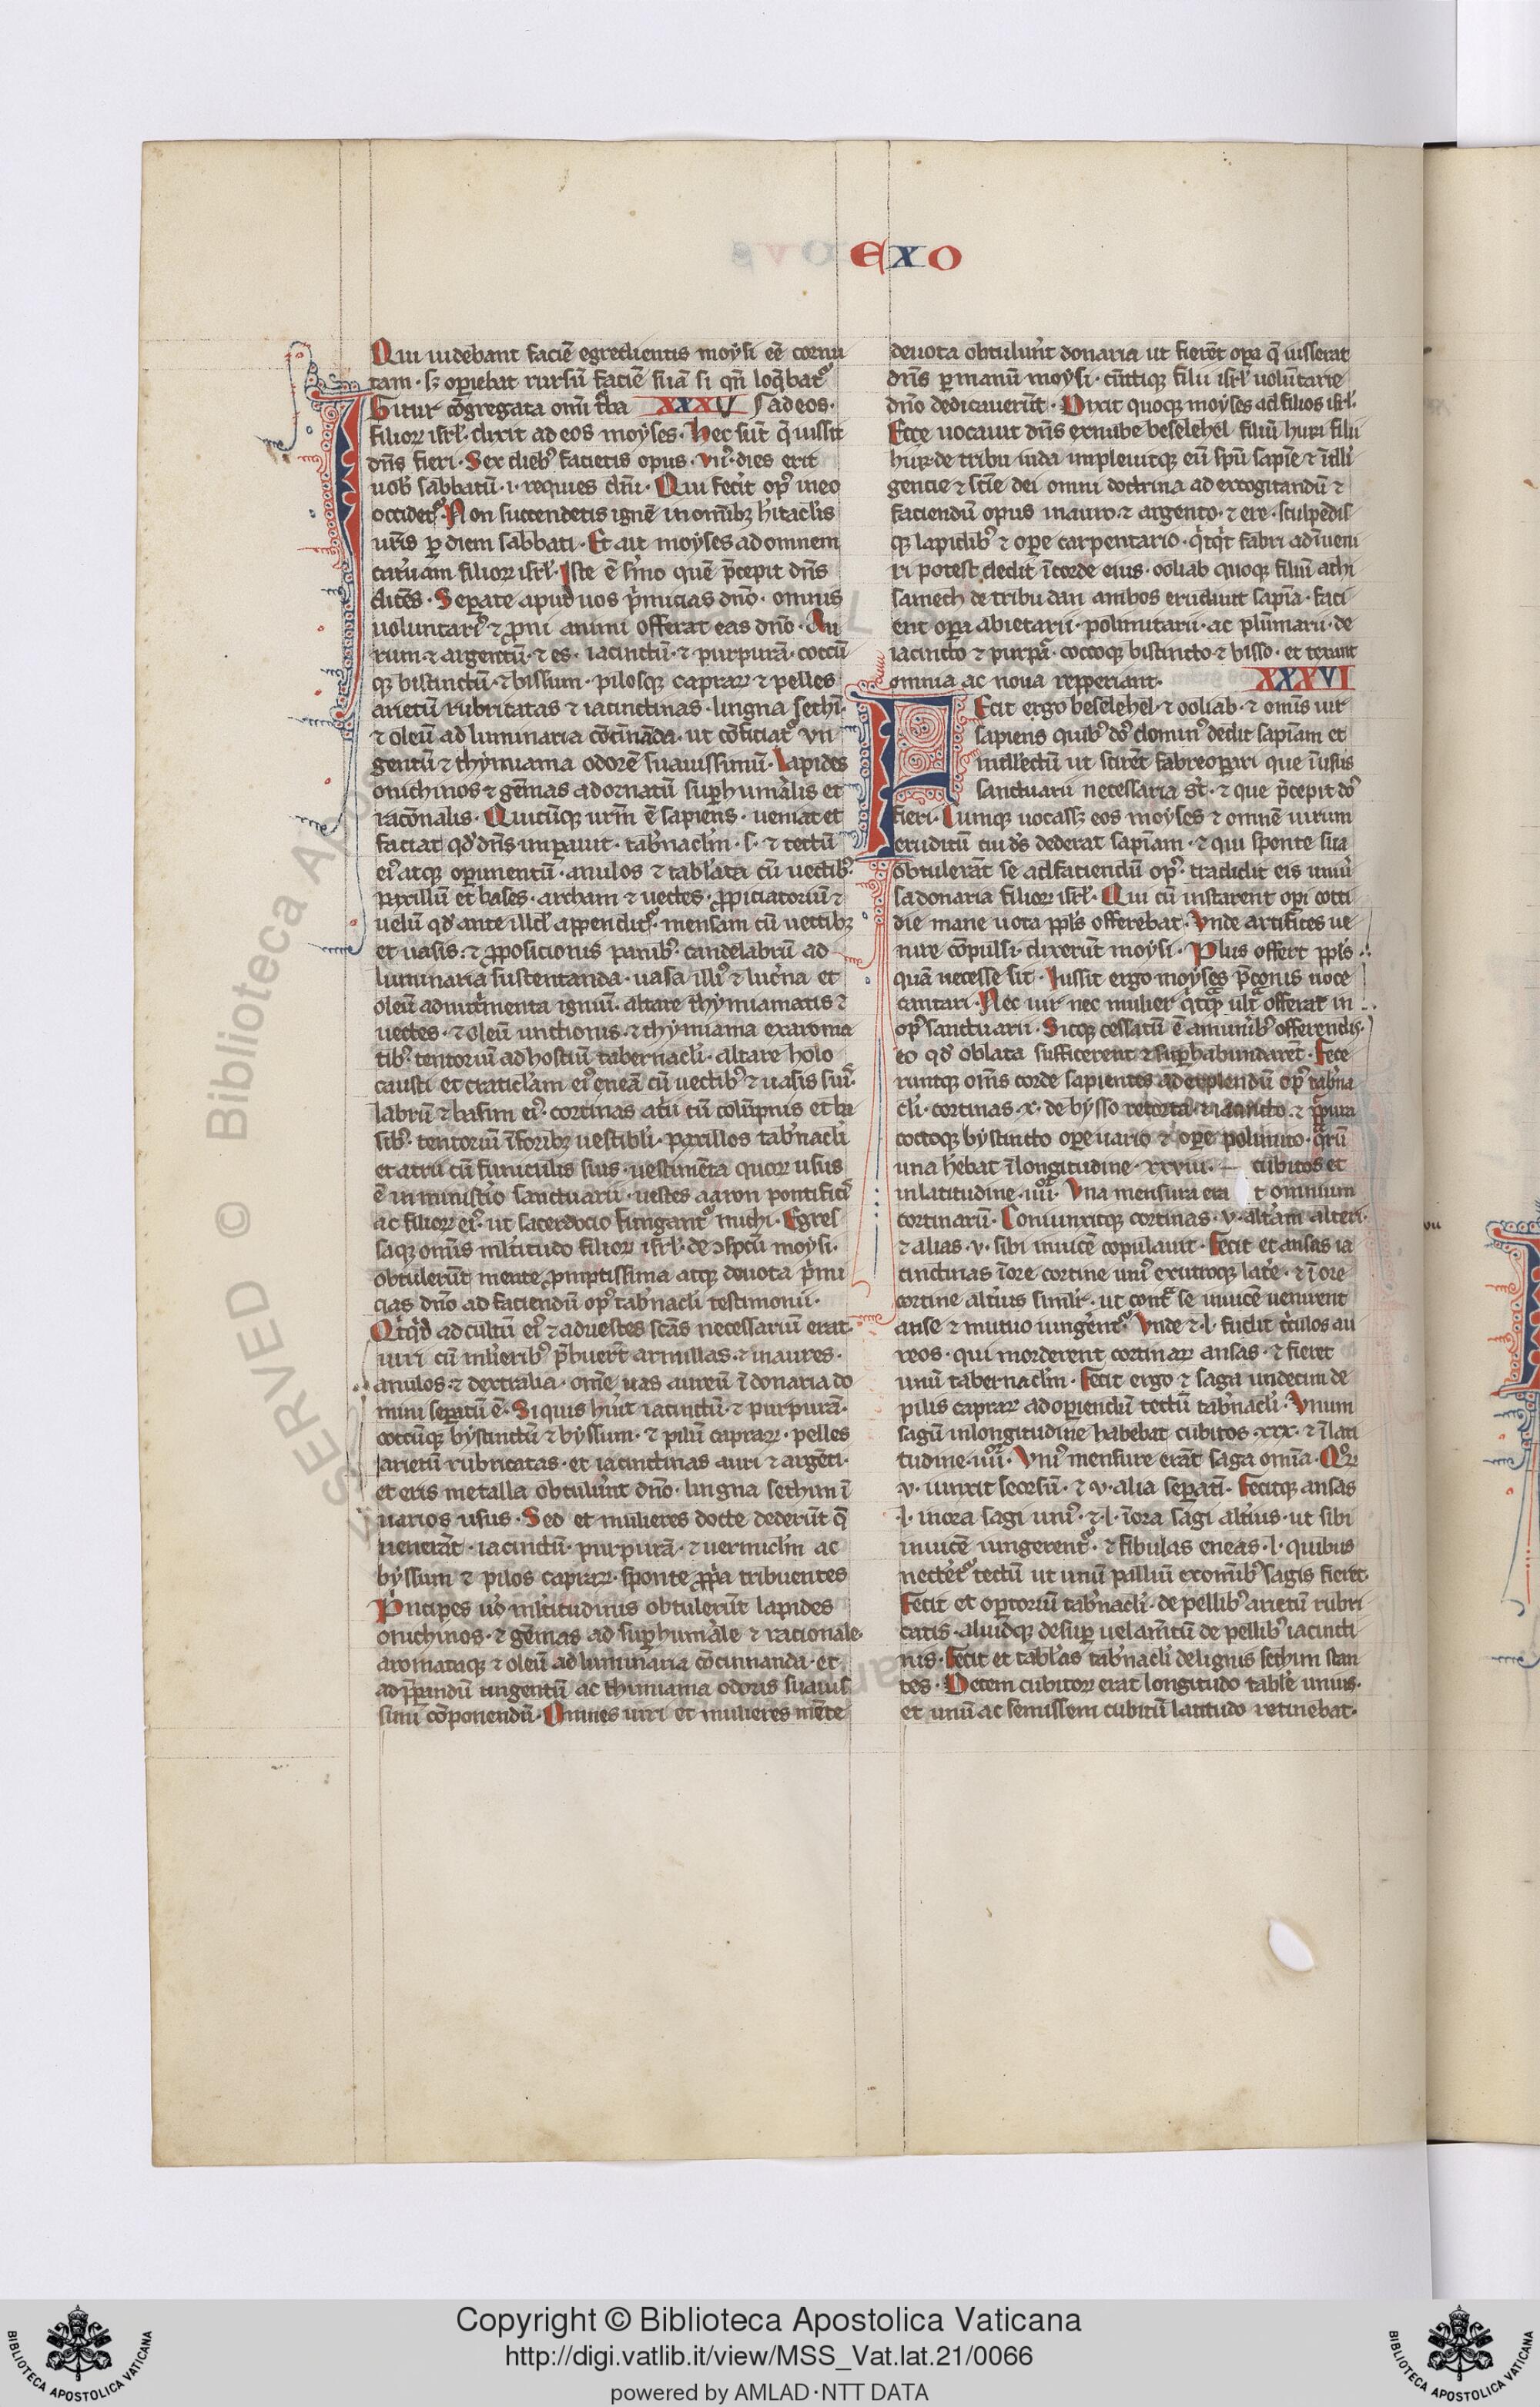 EXO
Qui uidebant faciē egredientis moysi eē cornu
tam· sꝫ opiebat rursū faciē suā si qn̄ loq̄batᷣ
Igitur cōgregata om̄i tᷣba XXXV ad eos·
filioꝝ isrl̓· dixit ad eos moyses· Hec sūt q̄ iussit
dn̄s fieri· Sex diebꝰ facietis opus· vii· dies erit
uob̓ sabbatū· i· requies dn̄i· Qui fecit opꝰ in eo
occidetᷣ· Non succendetis ignē in om̄ibꝫ h̓itacl̓is
ur̄is ꝑ diem sabbati· Et ait moyses ad omnem
cat̓uam filioꝝ isrl̓· Iste ē s̓mo quē p̄cepit dn̄s
dicēs· Separate apud uos p̓micias dn̄o· omnis
uoluntariꝰ ⁊ ꝓni animi offerat eas dn̄o· Au
rum ⁊ argentū· ⁊ es· iacinctū· ⁊ purpurā· coccū
qꝫ bistinctū· ⁊ bissum· pilosqꝫ capraꝝ ⁊ pelles
arietū rubricatas ⁊ iacinctinas· lingna sethī·
⁊ oleū ad luminaria cōcīnāda· ut cōficiatᷣ vn
gentū ⁊ thymiama odorē suauissimū· Lapides
onichinos ⁊ gēmas ad ornatū suꝑhum̓alis et
racōnalis· Quicūqꝫ ur̄m ē sapiens· ueniat et
faciat qd̓ dn̄s imꝑauit· tab̓nacl̓m· s· ⁊ tectū
eiꝰ atqꝫ oꝑimentū· anulos ⁊ tabl̓ata cū uectibꝰ·
paxillū et bases· archam ⁊ uectes· ꝓpiciatoriū ⁊
uelū qd̓ ante illd̓ appenditᷣ· mensam cū uectibꝫ
et uasis· ⁊ ꝓposicionis panibꝰ· candelabrū ad
luminaria sustentanda· uasa illiꝰ ⁊ luc̓na et
oleū ad nut̓menta igniū· altare thymiamatis ⁊
uectes· ⁊ oleū unctionis· ⁊ thymiama ex aroma
tibꝰ· tentoriū ad hostiū tabernacl̓i· altare holo
causti et craticl̓am eiꝰ eneā cū uectibꝰ ⁊ uasis suiᷤ·
labrū ⁊ basim eiꝰ· cortinas at̓ii cū colūpnis et ba
sibꝰ· tentoriū ī foribꝫ uestibl̓i· paxillos tab̓nacl̓i
et atrii cū funiculis suis· uestimēta quoꝝ usus
ē in minist̓io sanctuarii· uestes aaron pontificiᷤ
ac filioꝝ eiꝰ· ut sacerdocio fungantᷣ michi· Egres
saqꝫ om̄is ml̓titudo filioꝝ isrl̓· de ꝯspc̄tu moysi·
obtulerūt mente ꝓmptissima atqꝫ deuota p̓mi
cias dn̄o ad faciendū opꝰ tab̓nacl̓i testimonii·
Qͥcqͥd ad cultū eiꝰ ⁊ ad uestes sc̄as necessariū erat·
uiri cū mlierib̓ p̄buer̄t armillas· ⁊ inaures·
anulos· ⁊ dextralia· om̄e uas aureū ī donaria do
mini seꝑatū ē· Si quis hūit iacinctū· ⁊ purpurā·
coccūqꝫ bystinctū ⁊ byssum· ⁊ pilū capraꝝ· pelles
arietū rubricatas· et iacinctinas auri ⁊ argēti·
et eris metalla obtul̓unt dn̄o· lingna sethim ī
uarios usus· Sed et mulieres docte dederūt q̄
neuerāt· iacinctū· purpurā· ⁊ uermicl̓m ac
byssum ⁊ pilos capraꝝ· sponte ꝓpͥa tribuentes
Pͥncipes ūo ml̓titudinis obtulerūt lapides
onichinos· ⁊ gēmas ad suꝑhum̓ale ⁊ racionale·
aromataqꝫ ⁊ oleū ad luminaria cōcinnanda· et
ad p̄parandū ungentū ac thimiama odoris suauis
simi cōponendū· Omnes uiri et mulieres mēte
deuota obtulūnt donaria ut fierēt oꝑa q̄ iusserat
dn̄s ꝑ manū moysi· cūctiqꝫ filii isrl̓ uolūtarie
dn̄o dedicauerūt· Dixit quoqꝫ moyses ad filios isrl̓·
Ecce uocauit dn̄s ex nūbe beselehel filiū huri filii
hur· de tribu iuda impleuitqꝫ eū spū sapīe ⁊ ītlli
gencie ⁊ sc̄ie dei omni doctrina ad excogitandū ⁊
faciendū opus in auro· ⁊ argento· ⁊ ere· sculpēdis
qꝫ lapidibꝰ ⁊ oꝑe carpentario· qͥcqͥd fabri adīueni
ri potest dedit ī corde eius· ooliab quoqꝫ filiū achi
samech de tribu dan ambos erudiuit sapīa· faci
ent oꝑa abietarii· polimitarii· ac plūmarii· de
iacincto ⁊ purpᷓ· coccoqꝫ bistincto ⁊ bisso· et texunt
omnia ac noua repperiant· XXXVI
Fecit ergo beselehel· ⁊ ooliab· ⁊ om̄is uir
sapiens quibꝰ dō dominꝰ dedit sapīam et
intll̓ectū ut sciret fabre oꝑari que ī usus
sanctuarii necessaria st̄· ⁊ que p̄cepit dō
fieri· Cumqꝫ uocassꝫ eos moyses ⁊ omnē uirum
eruditū cui dn̄s dederat sapīam· ⁊ qui sponte sua
obtulerāt se ad faciendū opꝰ· tradidit eis uniū̓
sa donaria filioꝝ isrl̓· Qui cū instarent oꝑi cotti
die mane uota ppl̓s offerebat· Vnde artifices ue
nire cōpulsi· dixerūt moysi· Plus offert ppl̓s
quā necesse sit· Iussit ergo moyses p̄conis uoce
cantari· Nec uir nec mulier qͥcqᷓ ult̓ offerat in
opꝰ sanctuarii· Sicqꝫ cessatū ē a mun̓ibꝰ offerendis·
eo qd̓ oblata sufficerent ⁊ suꝑhabundarēt· Fece
runtqꝫ om̄s corde sapientes ad explendū opꝰ tab̓na
cl̓i· cortinas· x· de bysso retorta· ⁊ iacincto· ⁊ ꝑpura
coccoqꝫ bystincto oꝑe uario ⁊ oꝑe polimito· qͣrū
una hēbat ī longitudine· xxviii· cubitos et
in latitudine· iiii· Vna mensura era t omnium
cortinarū· Coniunxitqꝫ cortinas· v· alt̓am alteri·
⁊ alias· v· sibi inuicē copulauit· Fecit et ansas ia
cinctinas ī ore cortine uniꝰ ex utroqꝫ lat̓e· ⁊ ī ore
cortine alt̓ius simil̓r· ut contᷓ se inuicē uenirent
anse ⁊ mutuo iungerentᷣ· Vnde ⁊· l· fudit c̓culos au
reos· qui morderent cortinaꝝ ansas· ⁊ fieret
unū tabernacl̓m· Fecit ergo ⁊ saga undecim de
pilis capraꝝ ad oꝑiendū tectū tab̓nacl̓i· Vnum
sagū in longitudine habebat cubitos· xxx· ⁊ ī lati
tudine· iiii· Vniꝰ mensure erāt saga om̄ia· Qͦꝝ
v· iunxit seorsū· ⁊ v· alia seꝑatī· Fecitqꝫ ansas
·l· in ora sagi uniꝰ· ⁊· l· ī ora sagi alt̓ius· ut sibi
inuicē iungerentᷣ· ⁊ fibulas eneas· l· quibus
nect̓etᷣ tectū ut unū palliū ex om̄ibꝰ sagis fieret·
Fecit et oꝑtoriū tab̓nacl̓i· de pellibꝰ arietū rubri
catis· aliudqꝫ desuꝑ uelam̄tū de pellibꝰ iacincti
nis· Fecit et tabl̓as tab̓nacl̓i de lignis sethim stan
tes· Decem cubitoꝝ erat longitudo table unius·
et unū ac semissem cubitū latitudo retinebat·
Copyright © Biblioteca Apostolica Vaticana
http://digi.vatlib.it/view/MSS_Vat.lat.21/0066
powered by AMLAD·NTT DATA
BIBLIOTECA APOSTOLICA VATICANA
BIBLIOTECA APOSTOLICA VATICANA